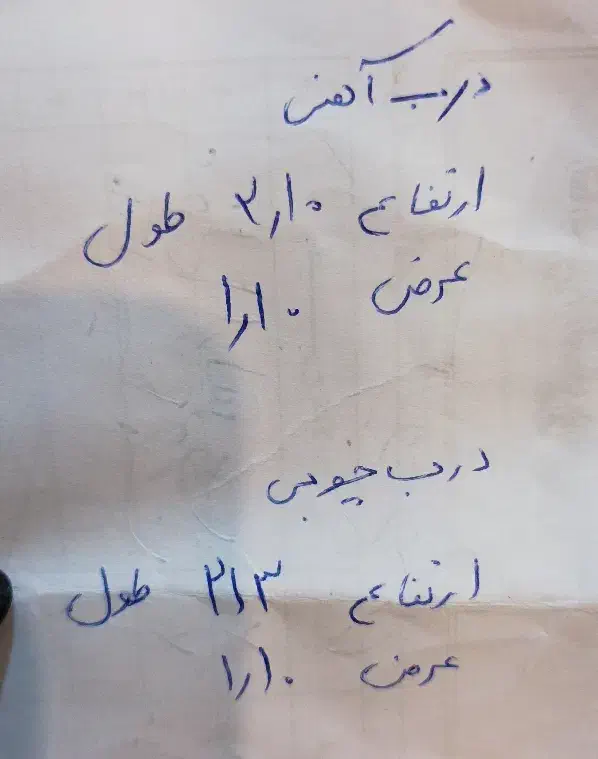 درب آهن
ارتفاع ۲٫۱۰ طول
عرض ۱٫۱۰
درب چوبی
ارتفاع ۲٫۱۳ طول
عرض ۱٫۱۰